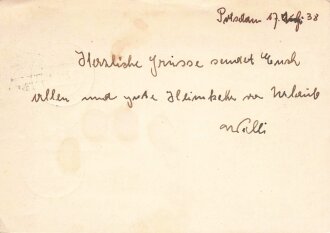 Potsdam 17. 38
Herzliche Grüsse sendet Euch
allen und gute Heimkehr vom Urlaub
Walli